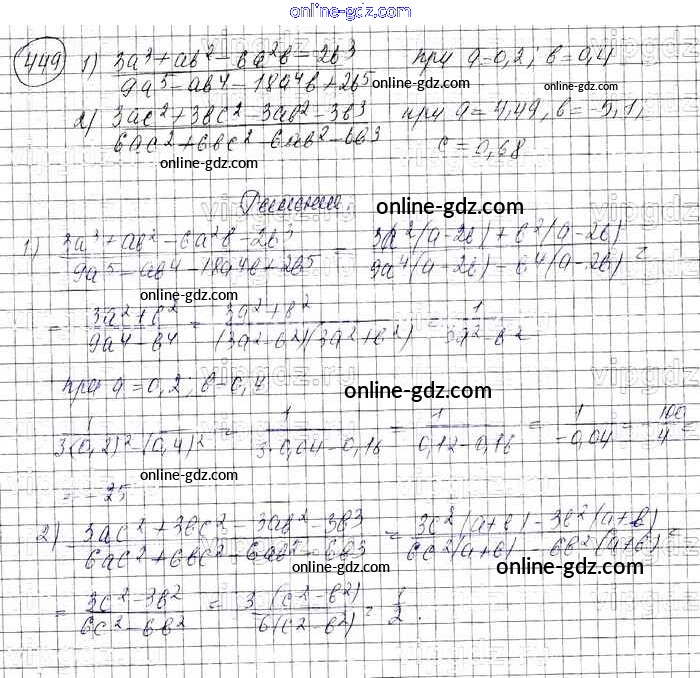 online-gdz.com
449 1) (3a³ + ab² - 6a²b - 2b³)/(9a⁵ - ab⁴ - 18a⁴b + 2b⁵) при a=0,2; b=0,4
online-gdz.com online-gdz.com
2) (3ac² + 3bc² - 3ab² - 3b³)/(6ac² + 6bc² - 6ab² - 6b³) при a=4,49, b=-5,1,
c=0,68
online-gdz.com online-gdz.com
Решение.
online-gdz.com
1) (3a³ + ab² - 6a²b - 2b³)/(9a⁵ - ab⁴ - 18a⁴b + 2b⁵) = (3a²(a-2b) + b²(a-2b))/(9a⁴(a-2b) - b⁴(a-2b)) =
online-gdz.com
= (3a²+b²)/(9a⁴-b⁴) = (3a²+b²)/((3a²-b²)(3a²+b²)) = 1/(3a²-b²)
при a=0,2; b=0,4
online-gdz.com
1/(3(0,2)²-(0,4)²) = 1/(3·0,04-0,16) = 1/(0,12-0,16) = 1/(-0,04) = -100/4 =
online-gdz.com
= -25
online-gdz.com
2) (3ac² + 3bc² - 3ab² - 3b³)/(6ac² + 6bc² - 6ab² - 6b³) = (3c²(a+b) - 3b²(a+b))/(6c²(a+b) - 6b²(a+b)) =
online-gdz.com online-gdz.com
= (3c²-3b²)/(6c²-6b²) = 3(c²-b²)/6(c²-b²) = 1/2.
online-gdz.com
vipgdz.ru